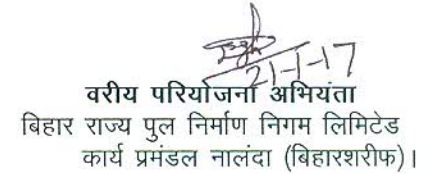 21-1-17
वरीय परियोजना अभियंता
बिहार राज्य पुल निर्माण निगम लिमिटेड
कार्य प्रमंडल नालंदा (बिहारशरीफ)।